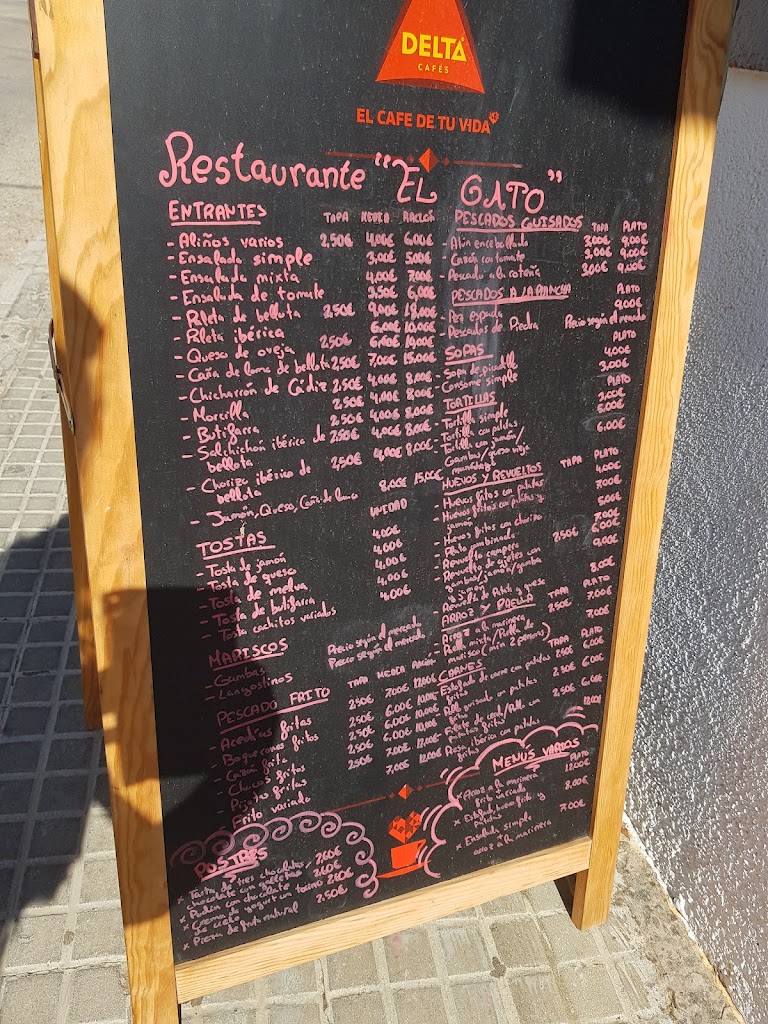 DELTA
CAFÉS
EL CAFE DE TU VIDA
Restaurante "EL GATO"
ENTRANTES TAPA MEDIA RACIÓN
- Aliños varios 2,50€ 4,00€ 6,00€
- Ensalada simple 3,00€ 5,00€
- Ensalada mixta 4,00€ 7,00€
- Ensalada de tomate 3,50€ 6,00€
- Paleta de bellota 3,50€ 9,00€ 18,00€
- Paleta ibérica 6,00€ 10,00€
- Queso de oveja 2,50€ 6,00€ 10,00€
- Caña de lomo de bellota 2,50€ 7,00€ 15,00€
- Chicharrón de Cádiz 2,50€ 4,00€ 8,00€
- Morcilla 2,50€ 4,00€ 8,00€
- Butifarra 2,50€ 4,00€ 8,00€
- Salchichón ibérico de bellota 2,50€ 4,00€ 8,00€
- Chorizo ibérico de bellota 2,50€ 4,00€ 8,00€
- Jamón, Queso, Caña de lomo 8,00€ 15,00€
TOSTAS UNIDAD
- Tosta de jamón 4,00€
- Tosta de queso 4,00€
- Tosta de melva 4,00€
- Tosta de butifarra 4,00€
- Tosta cachitos variados 4,00€
MARISCOS
- Gambas Precio según el mercado
- Langostinos Precio según el mercado
PESCADO FRITO TAPA MEDIA RACIÓN
- Acedias fritas 2,50€ 7,00€ 12,00€
- Boquerones fritos 2,50€ 6,00€ 10,00€
- Cazón frito 2,50€ 6,00€ 10,00€
- Chocos fritos 2,50€ 6,00€ 10,00€
- Pijotas fritas 2,50€ 7,00€ 12,00€
- Frito variado 7,00€ 12,00€
POSTRES
x Tarta de tres chocolates,
chocolate con galletas 2,60€
x Pudin con chocolate 2,60€
x Crema de yogurt con tocino
de cielo 2,60€
x Pieza de fruta natural 2,50€
PESCADOS GUISADOS TAPA PLATO
- Atún encebollado 3,00€ 9,00€
- Cazón con tomate 3,00€ 9,00€
- Pescado a la roteña 3,00€ 9,00€
PESCADOS A LA PLANCHA PLATO
- Pez espada 9,00€
- Pescados de Piedra Precio según el mercado
SOPAS PLATO
- Sopa de picadillo 4,00€
- Consomé simple 3,00€
TORTILLAS PLATO
- Tortilla simple 3,00€
- Tortilla con patatas 5,00€
- Tortilla con jamón/
Gambas/queso 6,00€
HUEVOS Y REVUELTOS TAPA PLATO
- Huevos fritos con patatas 4,00€
- Huevos fritos con patatas y
jamón 7,00€
- Huevos fritos con chorizo 5,00€
- Plato combinado 7,00€
- Revuelto campero 2,50€ 6,00€
- Revuelto de ajetes con
gambas/jamón/gamba
y jamón 9,00€
- Revuelto de Patata y queso 8,00€
ARROZ Y PAELLA TAPA PLATO
- Arroz a la marinera 2,50€ 7,00€
- Paella mixta/Paella de
marisco (min 2 personas) 7,00€
CARNES TAPA PLATO
- Estofado de carne con patatas
fritas 2,50€ 6,00€
guisado con patatas
fritas 2,50€ 6,00€
- Filete de con
patatas fritas 2,50€ 6,00€
- Presa ibérica con patatas
fritas 12,00€
MENÚS VARIOS PLATO
x Arroz a la marinera
frito variado 12,00€
x Estofado, huevo frito y
patatas 8,00€
x Ensalada simple
arroz a la marinera 7,00€